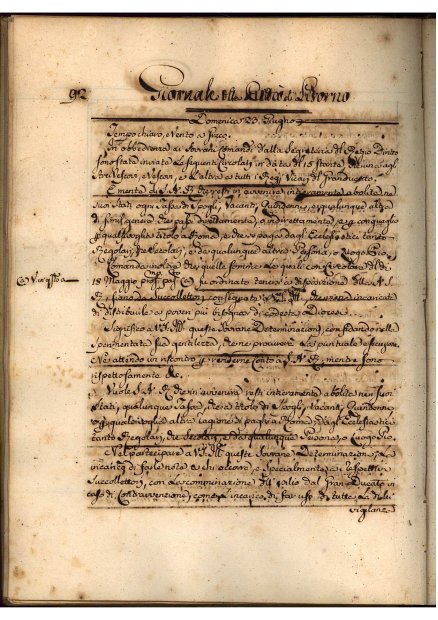 92 Giornale di Livorno
Domenica 23 Giugno
Tempo chiaro, Vento a
In obbedienza ai Sovrani Comandi dalla Segreteria del Regio Diritto
sono state inviate le seguenti Circolari in data del 15 stante
Vescovi, e l'altra a tutti i Regj Vicarj del Granducato.
È mente di S. A. R. che resti in avvenire interamente abolita ne
suoi Stati ogni Tassa di Spogli, Vacanti, Quindennj, e qualunque altra
di simil genere che passi direttamente, o indirettamente, e per conguaglio
qualsivoglia titolo a Roma, e che si paga dagli Ecclesiastici tanto
Regolari, che Secolari, e da qualunque altra Persona, o Luogo Pio.
Comanda inoltre che quelle somme, le quali con Circolare del dì
18 Maggio fu ordinato tenersi a disposizione della R. A.
S. siano da Succollettori consegnate a V. S. che resta incaricata
di distribuirle a poveri più bisognosi di codesta Diocesi.
Significo a V. S. queste Sovrane Determinazioni, confidando nella
sperimentata sua gentilezza, che ne procurerà la puntuale esecuzione.
Ne attendo un riscontro per renderne conto a S. A. R. mentre sono
rispettosamente &c.
Vuole S. A. R. che in avvenire resti interamente abolita ne suoi
Stati, qualunque Tassa, che a titolo di Spogli, Vacanti, Quindennj,
o qualsivoglia altra cagione si paghi a Roma dagli Ecclesiastici
tanto Regolari, che Secolari, e da qualunque Persona, o Luogo Pio.
Nel partecipare a V. S. queste Sovrane Determinazioni, La
incarico di farle note a chi occorre, e specialmente a respettivi
Succollettori, con la comminazione dell'esilio dal Gran Ducato in
caso di Contravvenzione, come l'incarico di far uso di tutta la di lei
vigilanz